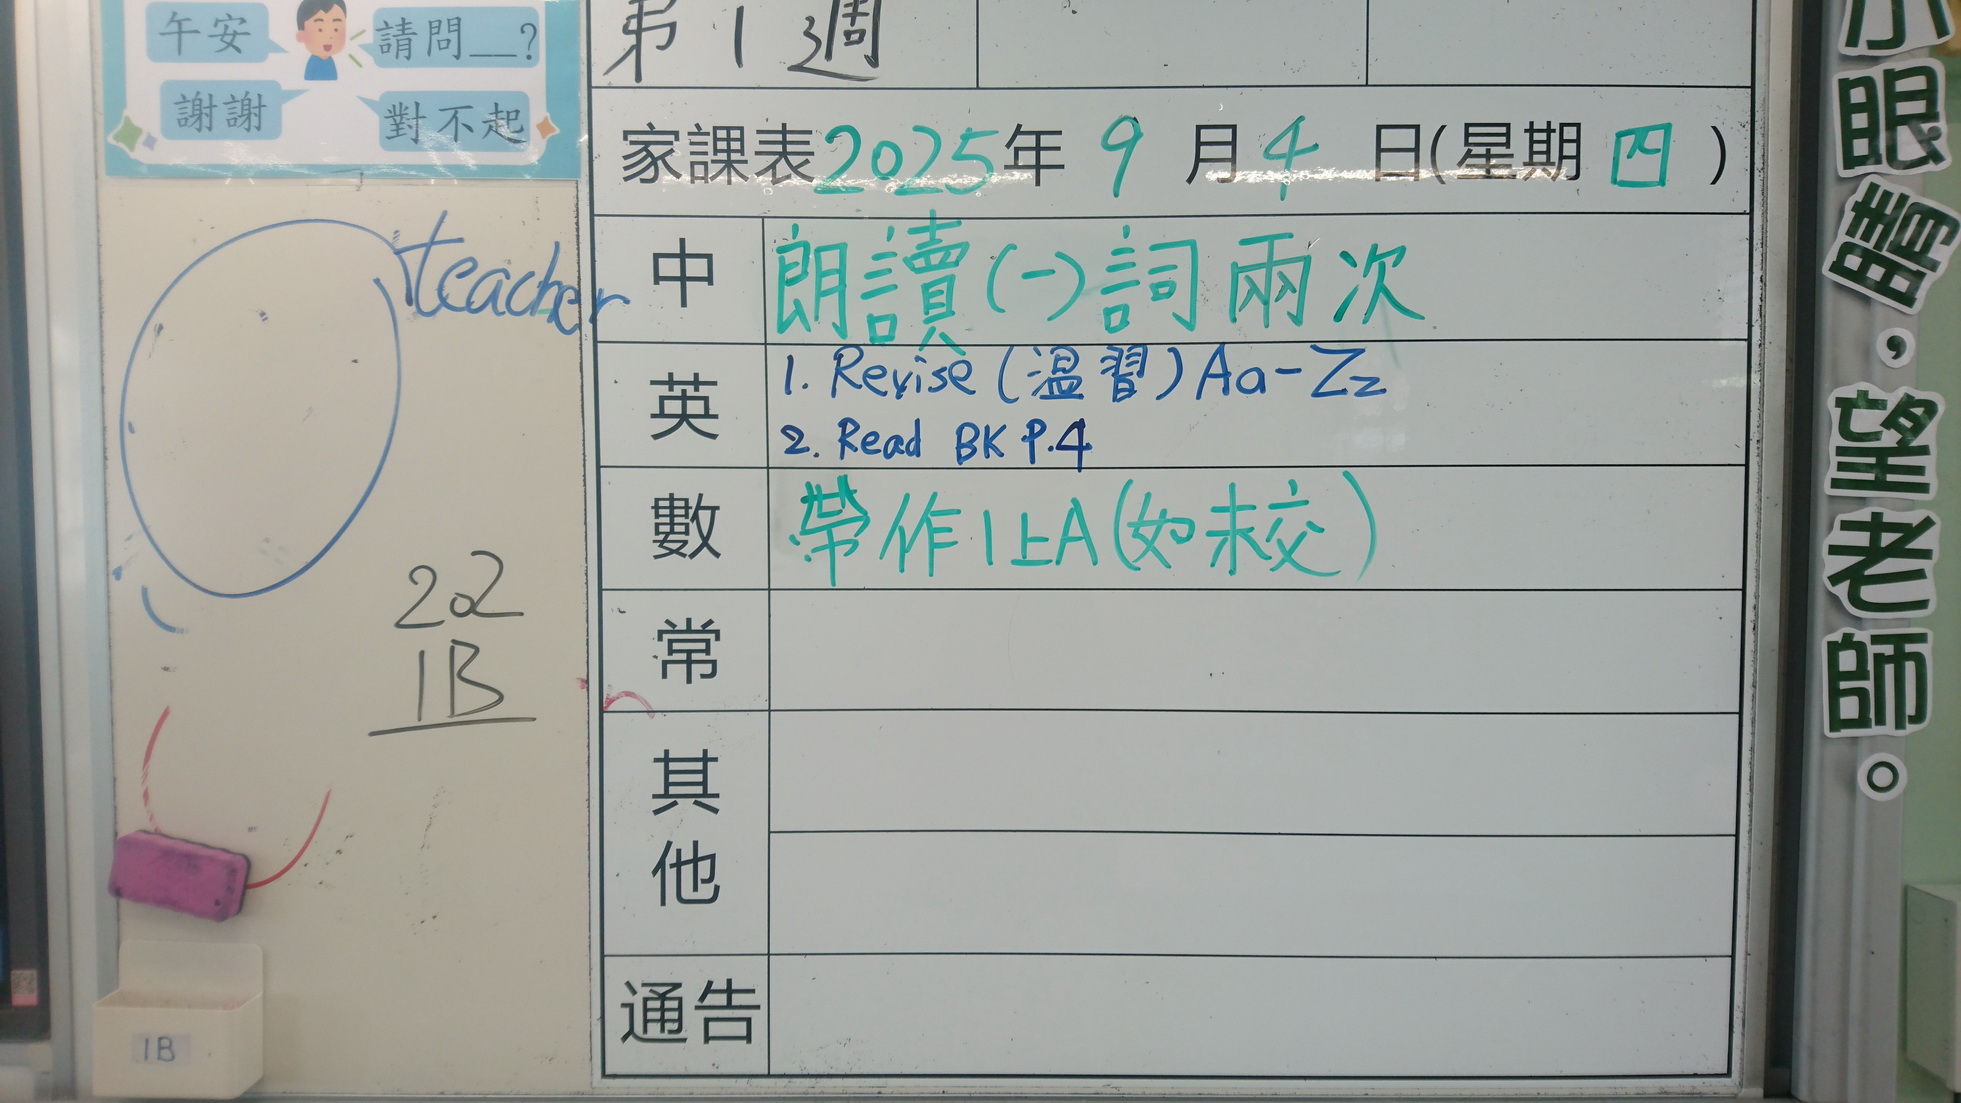 午安
請問__?
謝謝
對不起
第1週
家課表2025年9月4日(星期四)
中
朗讀(一)詞兩次
英
1. Revise (溫習) Aa-Zz
2. Read BK P.4
數
帶作1上A(如未交)
常
其他
通告
teacher
202
1B
1B
小眼睛,望老師。